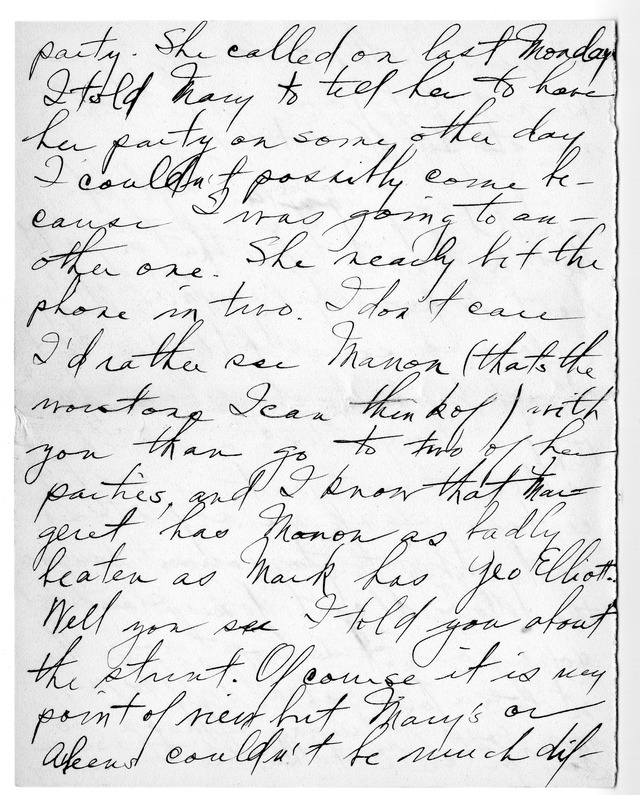 party. She called on last Monday
I told Mary to tell her to have
her party on some other day
I couldn't possibly come be-
cause I was going to an-
other one. She nearly bit the
phone in two. I don't care
I'd rather see Manon (thats the
worst one I can think of) with
you than go to two of her
parties, and I know that Mar-
geret has Manon as badly
beaten as Mark has Geo Elliott.
Well you see I told you about
the stunt. Of course it is my
point of view but Mary's or
couldn't be much dif-